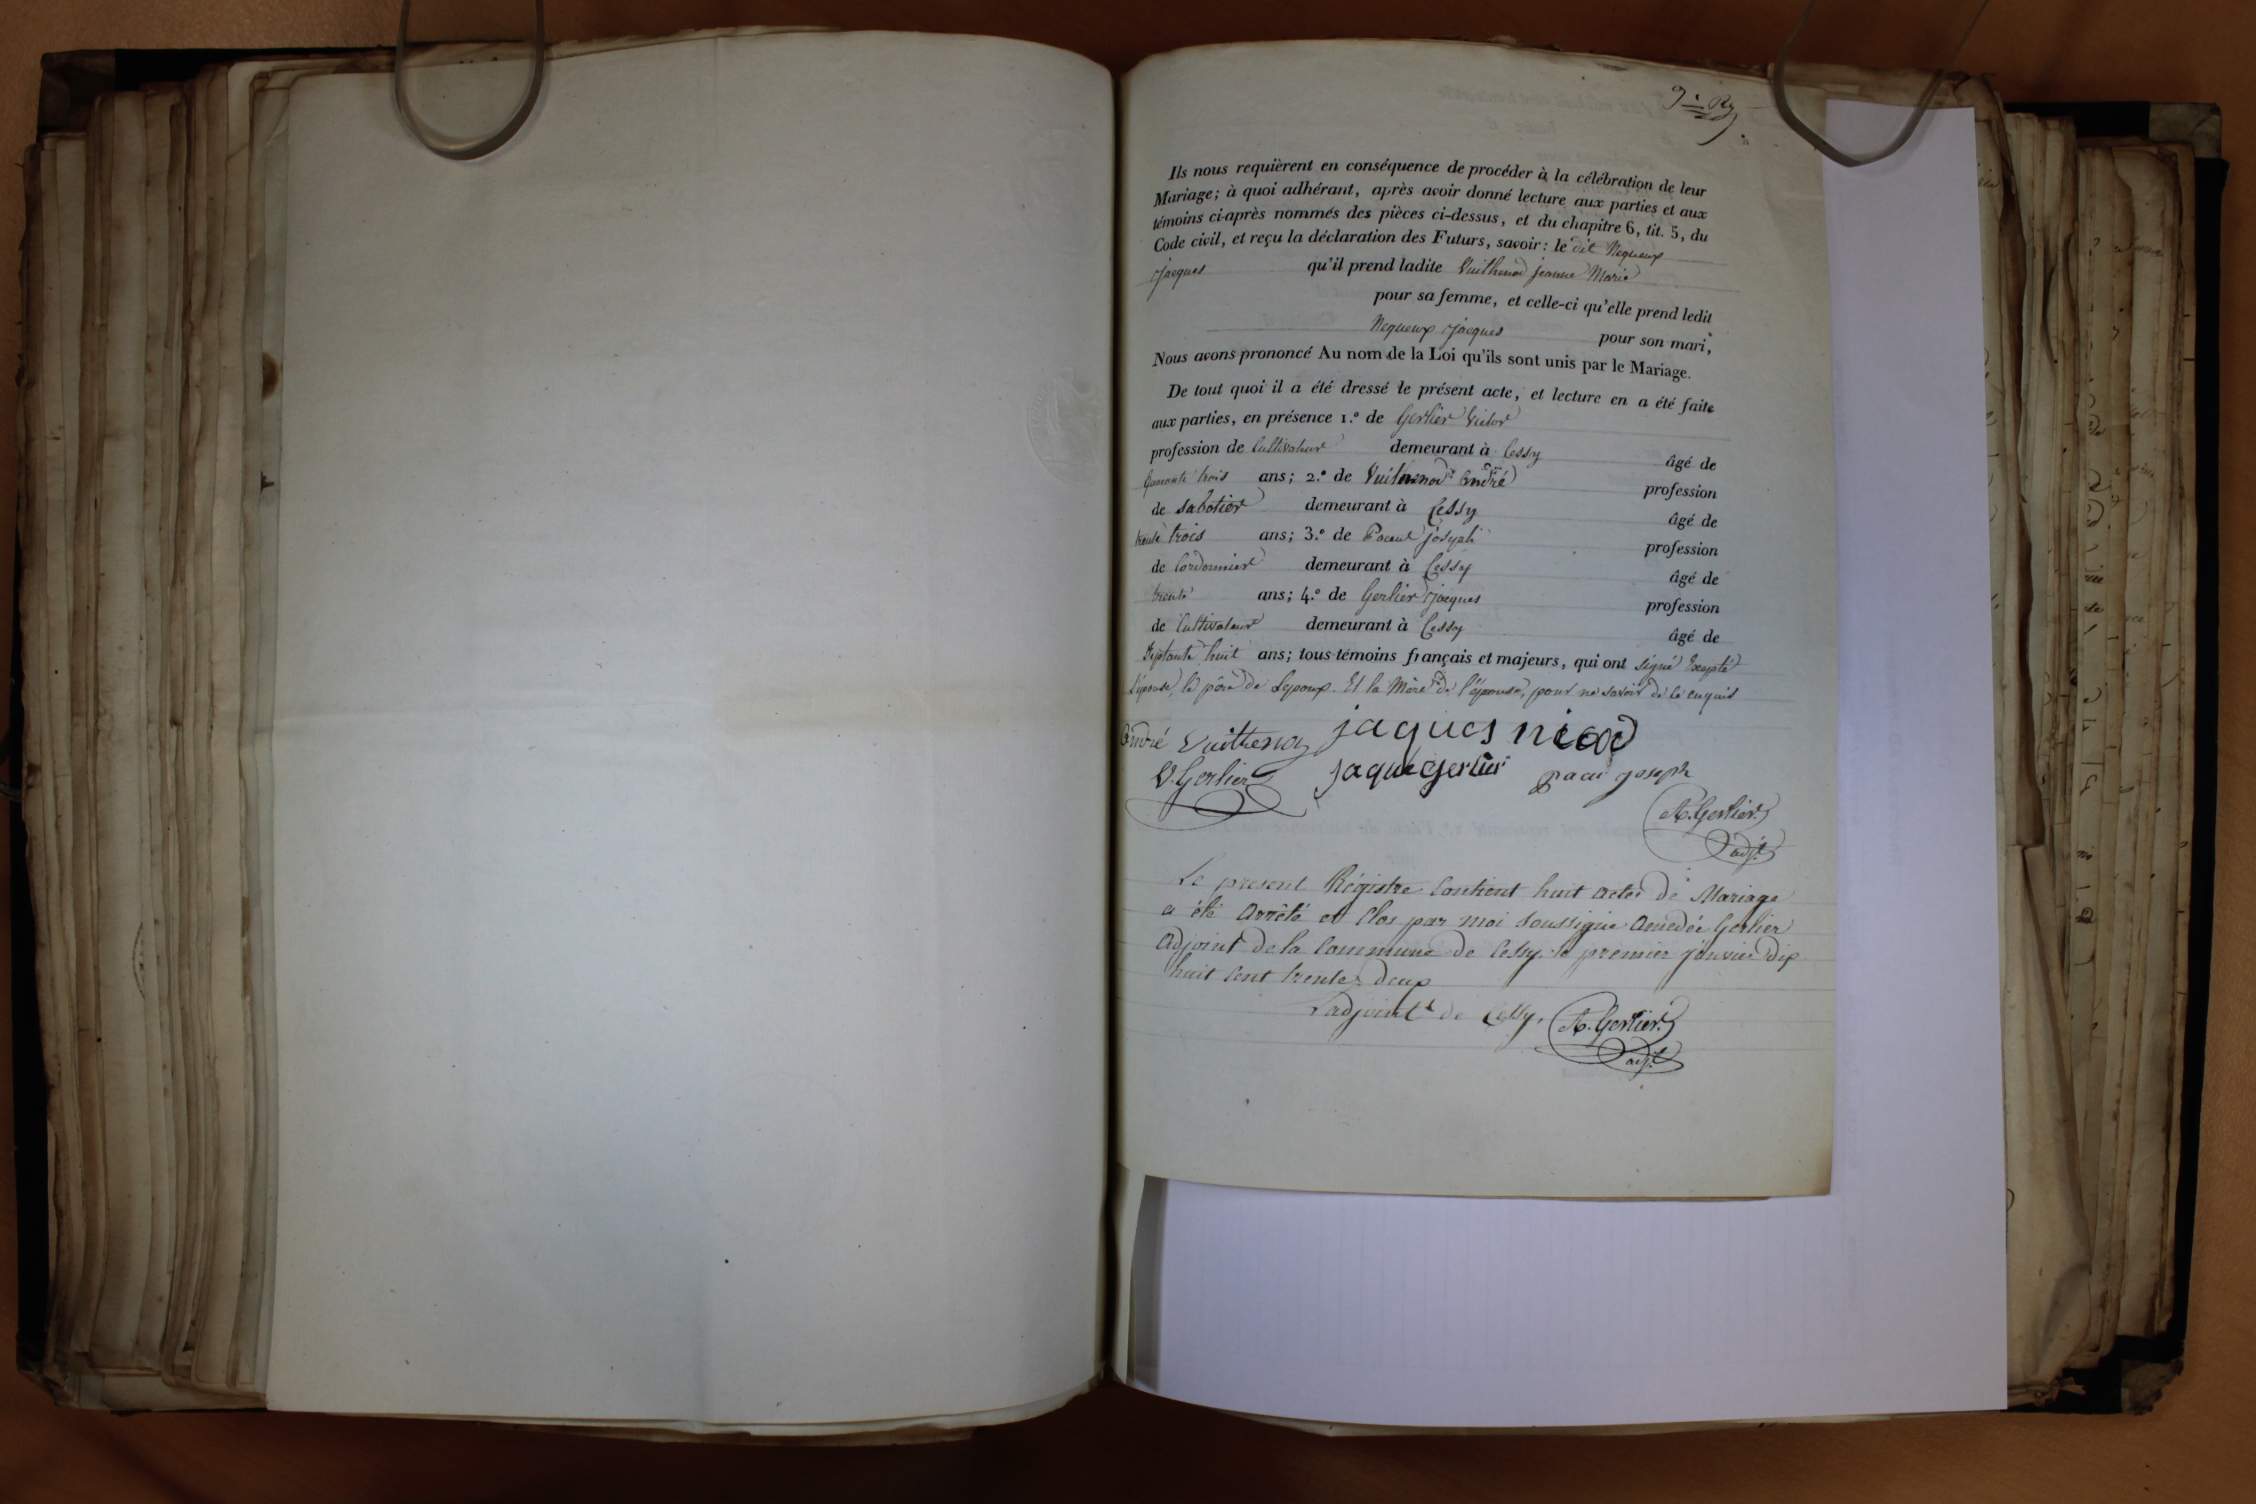 Ils nous requièrent en conséquence de procéder à la célébration de leur
Mariage; à quoi adhérant, après avoir donné lecture aux parties et aux
témoins ci-après nommés des pièces ci-dessus, et du chapitre 6, tit. 5, du
Code civil, et reçu la déclaration des Futurs, savoir: le dit Nequeux
jacques qu'il prend ladite Vuithenod jeanne Marie
pour sa femme, et celle-ci qu'elle prend ledit
Nequeux jacques pour son mari,
Nous avons prononcé Au nom de la Loi qu'ils sont unis par le Mariage.
De tout quoi il a été dressé le présent acte, et lecture en a été faite
aux parties, en présence 1.° de Gerlier Victor
profession de Cultivateur demeurant à Cessy âgé de
Quarante trois ans; 2.° de André profession
de sabotier demeurant à Cessy âgé de
trente trois ans; 3.° de joseph profession
de Cordonnier demeurant à Cessy âgé de
trente ans; 4.° de Gerlier jacques profession
de Cultivateur demeurant à Cessy âgé de
Septante huit ans; tous témoins français et majeurs, qui ont signé Excepté
l'épouse, le père de Lepoux Et la Mère de l'épouse, pour ne savoir de ce enquis
André Vuithenoz jaques
V. Gerlier jaque gerlier joseph
A. Gerlier
adj.t
Le présent Régistre Contient huit actes de Mariage
a été Arrêté et Clos par moi soussigné Amédée Gerlier
Adjoint de la Commune de Cessy le premier janvier dix
huit Cent trente deux
L'adjoint de Cessy,
A. Gerlier
adj.t